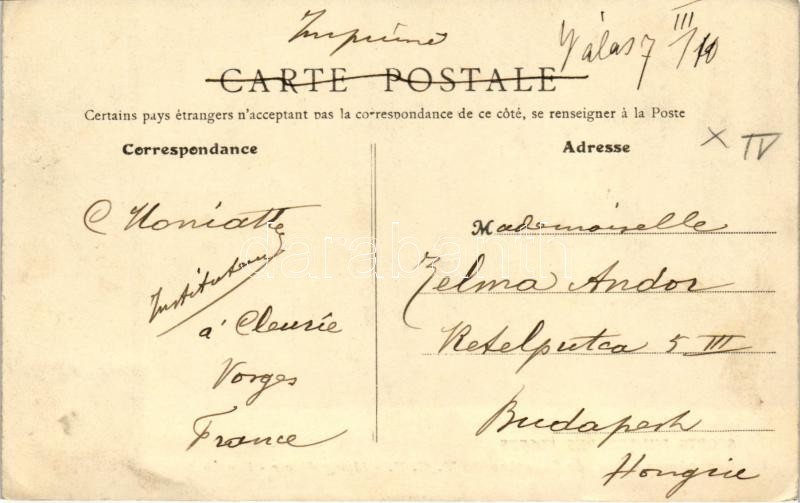 Imprimé
Válasz III/10
CARTE POSTALE
Certains pays étrangers n'acceptant pas la correspondance de ce côté, se renseigner à la Poste
Correspondance
Adresse
X IV
C
Instituteur
à Cleurie
Vosges
France
Mademoiselle
Zelma Andor
Retelputca 5 III
Budapesh
Hongrie
darabanth